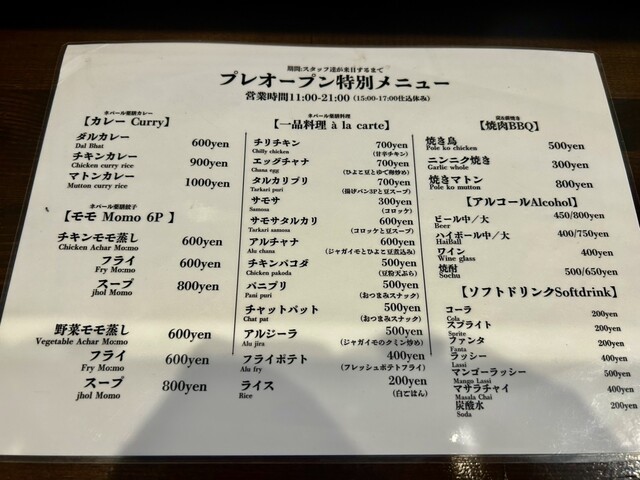 期間:スタッフ達が来日するまで
プレオープン特別メニュー
営業時間11:00-21:00 (15:00-17:00仕込休み)
ネパール薬膳カレー
【カレー Curry】
ダルカレー 600yen
Dal Bhat
チキンカレー 900yen
Chicken curry rice
マトンカレー 1000yen
Mutton curry rice
ネパール薬膳餃子
【モモ Momo 6P 】
チキンモモ蒸し 600yen
Chicken Achar Mo:mo
フライ 600yen
Fry Mo:mo
スープ 800yen
jhol Momo
野菜モモ蒸し 600yen
Vegetable Achar Mo:mo
フライ 600yen
Fry Mo:mo
スープ 800yen
jhol Momo
ネパール薬膳料理
【一品料理 à la carte】
チリチキン 700yen
Chilly chicken (甘辛チキン)
エッグチャナ 700yen
Chana egg (ひよこ豆とゆで卵炒め)
タルカリプリ 700yen
Tarkari puri (揚げパン3Pと豆スープ)
サモサ 300yen
Samosa (コロッケ)
サモサタルカリ 600yen
Tarkari samosa (コロッケと豆スープ)
アルチャナ 600yen
Alu chana (ジャガイモとひよこ豆煮込み)
チキンパコダ 500yen
Chicken pakoda (豆粉天ぷら)
パニプリ 500yen
Pani puri (おつまみスナック)
チャットパット 500yen
Chat pat (おつまみスナック)
アルジーラ 500yen
Alu jira (ジャガイモのクミン炒め)
フライポテト 400yen
Alu fry (フレッシュポテトフライ)
ライス 200yen
Rice (白ごはん)
【焼肉BBQ】
焼き鳥 500yen
Pole ko chicken
ニンニク焼き 300yen
Garlic whole
焼きマトン 800yen
Pole ko mutton
【アルコールAlcohol】
ビール中／大 450/800yen
Beer
ハイボール中／大 400/750yen
HaiBall
ワイン 400yen
Wine glass
焼酎 500/650yen
Sochu
【ソフトドリンクSoftdrink】
コーラ 200yen
Cola
スプライト 200yen
Sprite
ファンタ 200yen
Fanta
ラッシー 400yen
Lassi
マンゴーラッシー 500yen
Mangu Lassi
マサラチャイ 400yen
Masala Chai
炭酸水 200yen
Soda